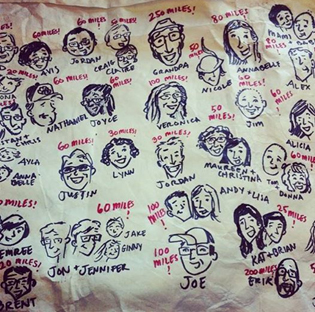 250 MILES!
80 MILES!
60 MILES!
60 MILES!
MIAMI
DAVIS
JORDAN
CRAIG
CLAIRE
60 MILES!
GRANDPA
50 MILES!
ANNABELLE
60 MILES!
60 MILES!
100 MILES!
NICOLE
ALEX
20 MILES!
NATHANIEL
JOYCE
VERONICA
50 MILES!
JIM
CHRIS
60 MILES!
30 MILES!
30 MILES!
ALICIA
60 MILES!
AYCA
ANNA-
BELLE
JUSTIN
LYNN
JORDAN
MAUREEN +
CHRISTINA
TIM
DONNA
60 MILES
100 MILES!
ANDY + LISA
25 MILES!
JAKE
GINNY
EMREE
20 MILES!
JON + JENNIFER
100 MILES!
JOE
KAT + BRIAN
200 MILES!
ERIK
BRENT